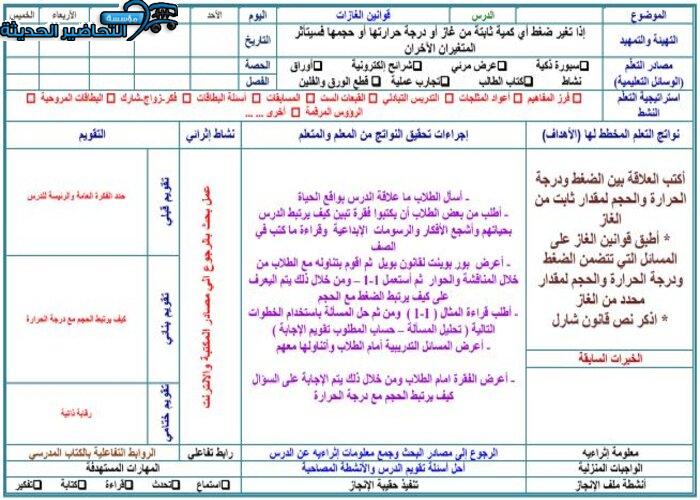 مؤسسة
التحاضير الحديثة
الموضوع
الدرس
قوانين الغازات
اليوم
الأحد
الأربعاء
الخميس
التهيئة والتمهيد
إذا تغير ضغط أي كمية ثابتة من غاز أو درجة حرارتها أو حجمها فسيتأثر
المتغيران الأخران
التاريخ
مصادر التعلم
(الوسائل التعليمية)
سبورة ذكية عرض مرئي شرائح إلكترونية أوراق
نشاط كتاب الطالب تجارب عملية قطع الورق والفلين
الحصة
الفصل
استراتيجية التعلم
النشط
فرز المفاهيم أعواد المثلجات التدريس التبادلي القبعات الست المسابقات أسئلة البطاقات فكر-زواج-شارك البطاقات المروحية
الرؤوس المرقمة أخرى ... ...
نواتج التعلم المخطط لها (الأهداف)
إجراءات تحقيق النواتج من المعلم والمتعلم
نشاط إثرائي
التقويم
أكتب العلاقة بين الضغط ودرجة
الحرارة والحجم لمقدار ثابت من
الغاز
* أطبق قوانين الغاز على
المسائل التي تتضمن الضغط
ودرجة الحرارة والحجم لمقدار
محدد من الغاز
* اذكر نص قانون شارل
الخبرات السابقة
- أسأل الطلاب ما علاقة الدرس بواقع الحياة
- أطلب من بعض الطلاب أن يكتبوا فقرة تبين كيف يرتبط الدرس
بحياتهم وأشجع الأفكار والرسومات الإبداعية وقراءة ما كتب في
الصف
- أعرض بور بوينت لقانون بويل ثم اقوم بتناوله مع الطلاب من
خلال المناقشة والحوار ثم أستعمل 1-1 – ومن خلال ذلك يتم اليعرف
على كيف يرتبط الضغط مع الحجم
- أطلب قراءة المثال ( 1-1 ) ومن ثم حل المسألة باستخدام الخطوات
التالية ( تحليل المسألة – حساب المطلوب تقويم الإجابة )
- أعرض المسائل التدريبية أمام الطلاب وأتناولها معهم
- أعرض الفقرة امام الطلاب ومن خلال ذلك يتم الإجابة على السؤال
كيف يرتبط الحجم مع درجة الحرارة
عمل بحث بالرجوع الي مصادر المكتبية والانترنت
تقويم قبلي
حدد الفكرة العامة والرئيسة للدرس
تقويم بنائي
كيف يرتبط الحجم مع درجة الحرارة
تقويم ختامي
رقابة ذاتية
معلومة إثراءيه
الرجوع إلى مصادر البحث وجمع معلومات إثراءيه عن الدرس
رابط تفاعلي
الروابط التفاعلية بالكتاب المدرسي
الواجبات المنزلية
أحل أسئلة تقويم الدرس والأنشطة المصاحبة
المهارات المستهدفة
أنشطة ملف الإنجاز
تنفيذ حقيبة الإنجاز
استماع تحدث قراءة كتابة تفكير